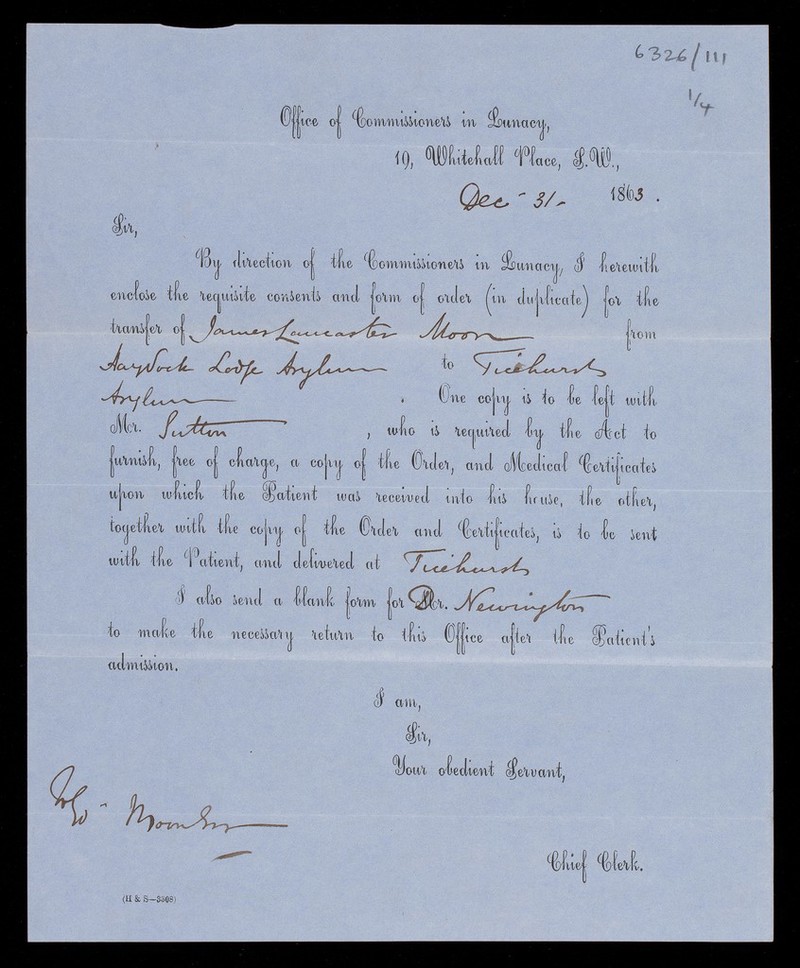 6326/111
1/4
Office of Commissioners in Lunacy,
19, Whitehall Place, S.W.,
Dec - 31 - 1863.
Sir,
By direction of the Commissioners in Lunacy, I herewith
enclose the requisite consents and form of order (in duplicate) for the
transfer of James Lancaster Moon from
Haydock Lodge Asylum to Ticehurst
Asylum . One copy is to be left with
Mr. Sutton , who is required by the Act to
furnish, free of charge, a copy of the Order, and Medical Certificates
upon which the Patient was received into his house, the other,
together with the copy of the Order and Certificates, is to be sent
with the Patient, and delivered at Ticehurst
I also send a blank form for Dr. Newington
to make the necessary return to this Office after the Patient's
admission.
I am,
Sir,
Your obedient Servant,
Moon Esq
Chief Clerk.
(H & S—3508)